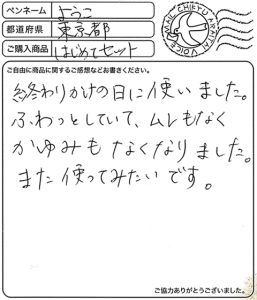 ペンネーム ようこ
都道府県 東京都
ご購入商品 はじめてセット
MAIL CHIETU ARAITAI VOICE
ご自由に商品に関するご感想などお書きください。
終わりかけの日に使いました。
ふわっとしていて、ムレもなく
かゆみもなくなりました。
また使ってみたいです。
ご協力ありがとうございました。